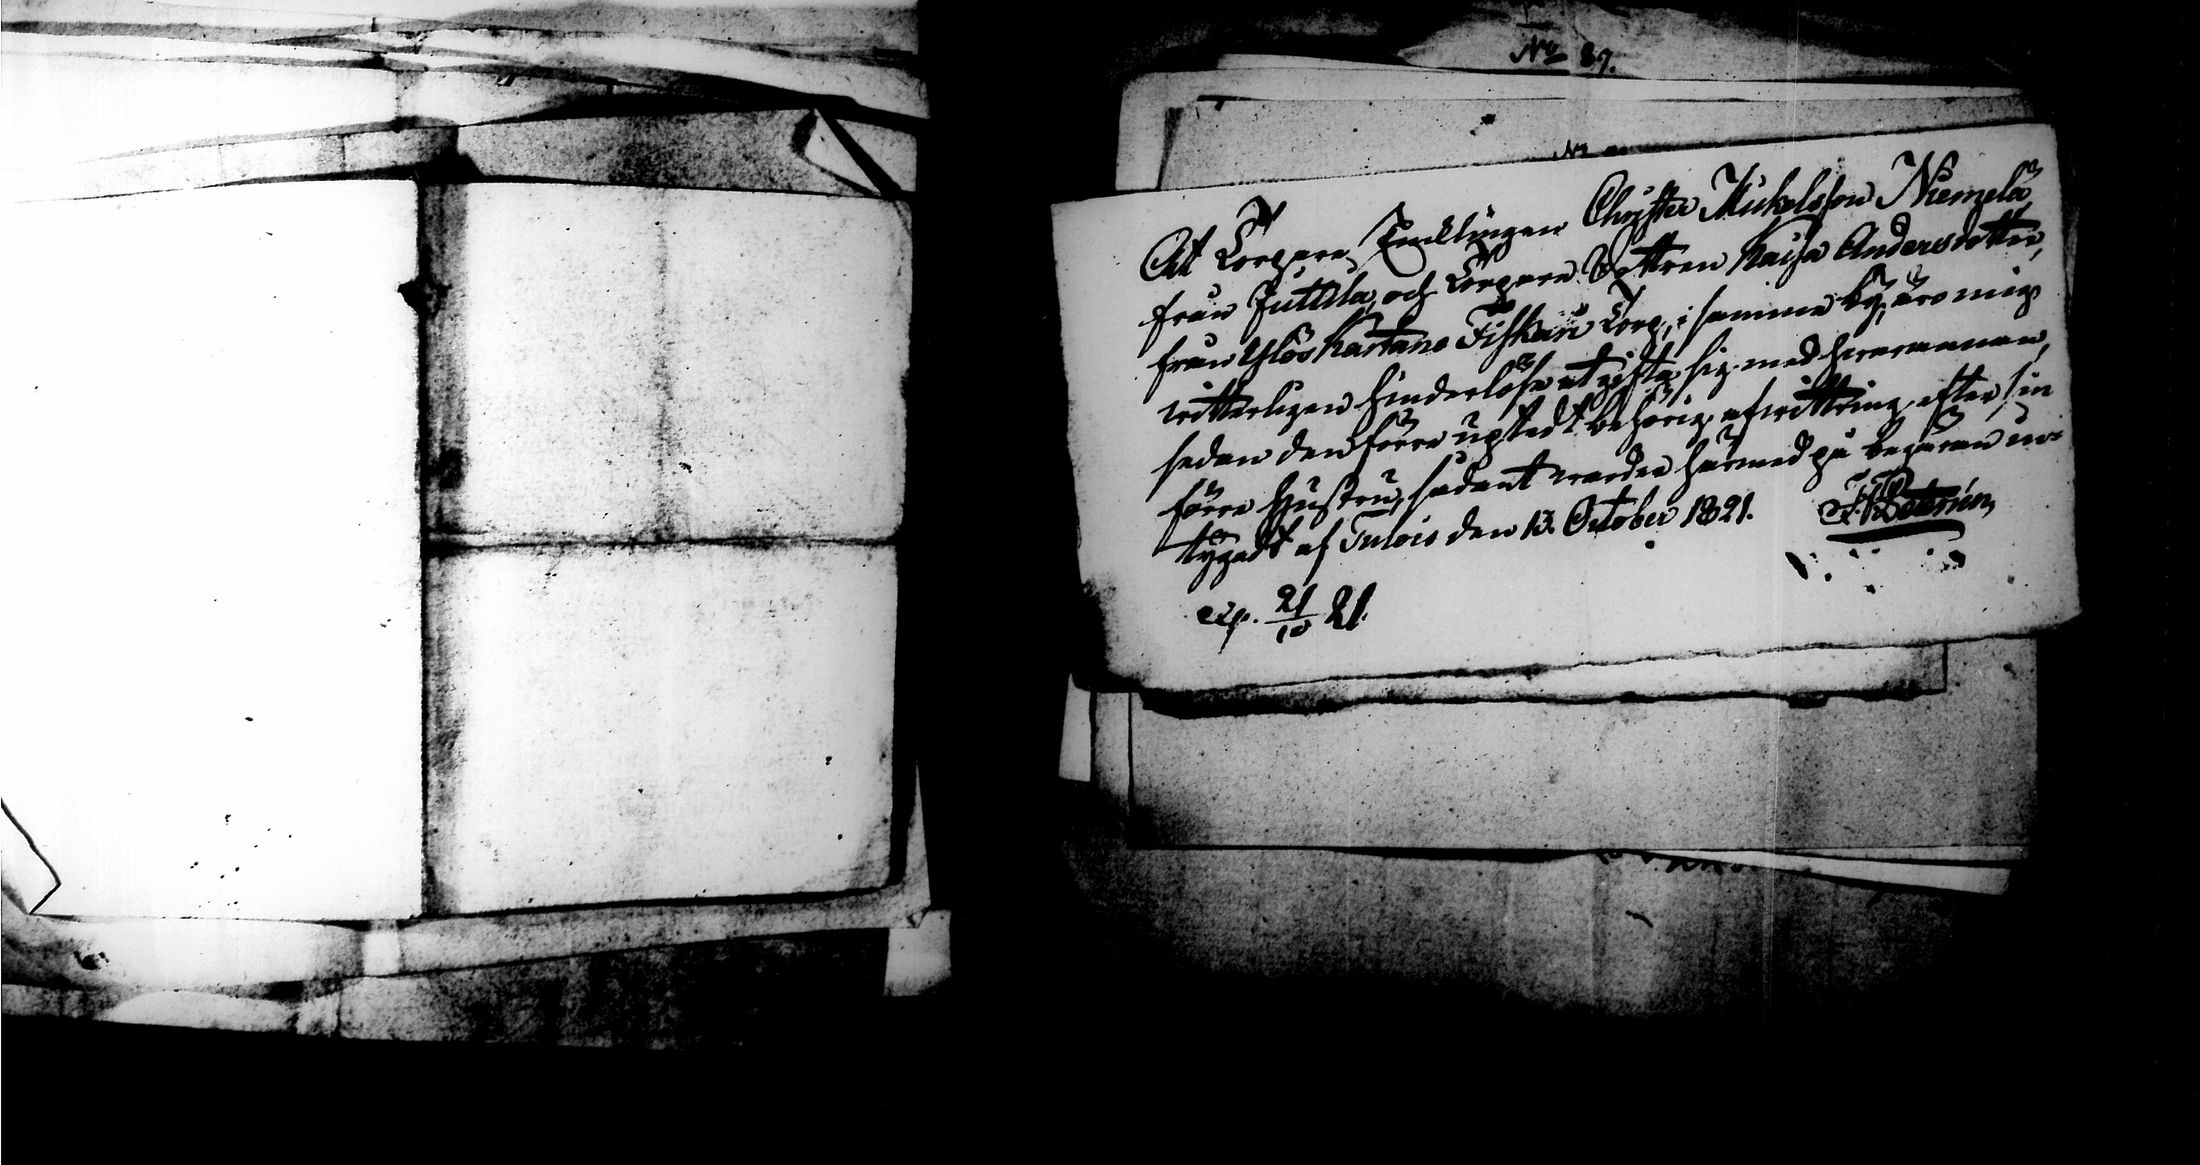 No 89.
Att Torpare Encklingen Christer Mickelsson Niemelä
från Juttila, och Torpare Dottren Kaisa Andersdotter,
från Ylös Kartano Fiskari Torp, i samma by, äro mig
witterligen hinderlösa at gifta sig med hvarannan,
sedan den förre uptedt behörig afwittring efter sin
förre Hustru, sådant warder härmed på begäran in-
tygadt af Tulois den 13. October 1821.
exp. 21/10 21.